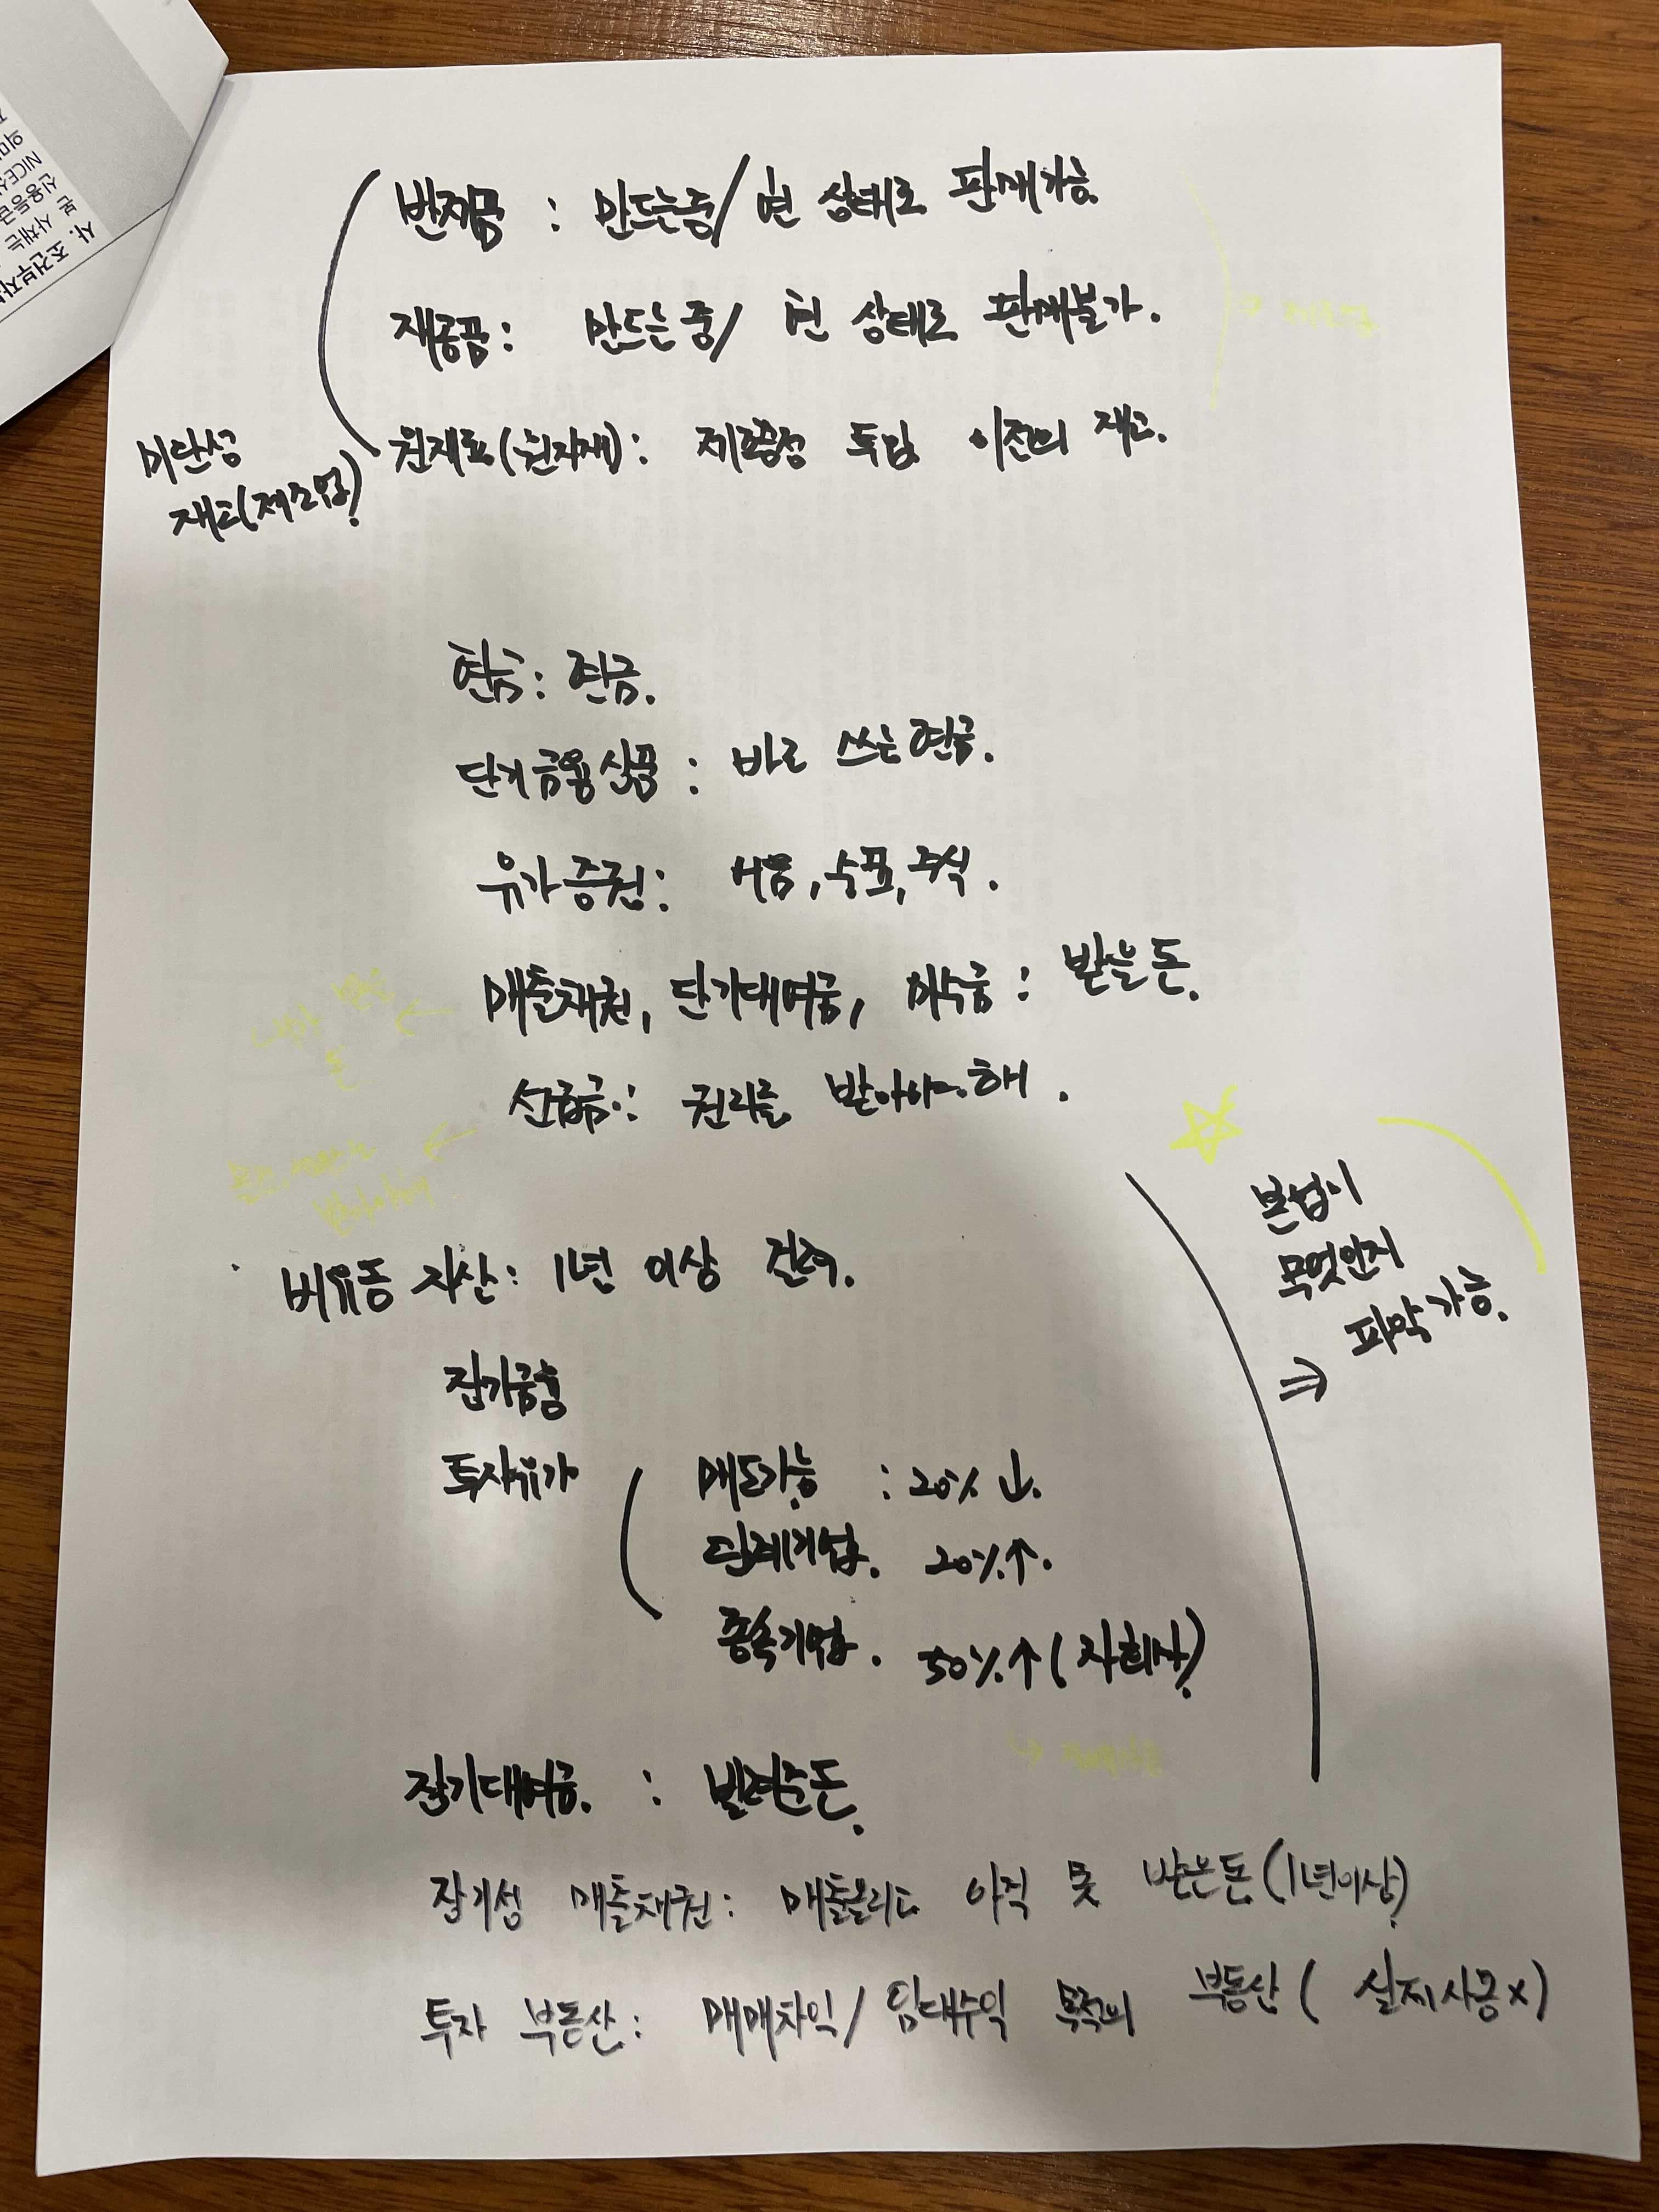 사. 조건부자
본 사채는
신용등급
NICE신
의미
반제품 : 만드는중/ 현 상태로 판매가능.
재공품 : 만드는중/ 현 상태로 판매불가.
원재료(원자재) : 제조공정 투입 이전의 재고.
미완성
재고(제조업)
→ 제조업
현금 : 현금.
단기금융상품 : 바로 쓰는 현금.
유가증권 : 어음, 수표, 주식.
매출채권, 단기대여금, 미수금 : 받을 돈.
← 받을
돈
선급금 : 권리를 받아야 해.
←
받아야해.
비유동 자산 : 1년 이상 걸려.
본업이
무엇인지
파악 가능.
⇒
장기금융
투자유가
매도가능 : 20% ↓.
관계기업. 20%↑.
종속기업. 50%↑(자회사)
장기대여금. : 빌려준돈.
장기성 매출채권 : 매출올리고 아직 못 받은돈(1년이상)
투자 부동산 : 매매차익/임대수익 목적의 부동산( 실제사용x)